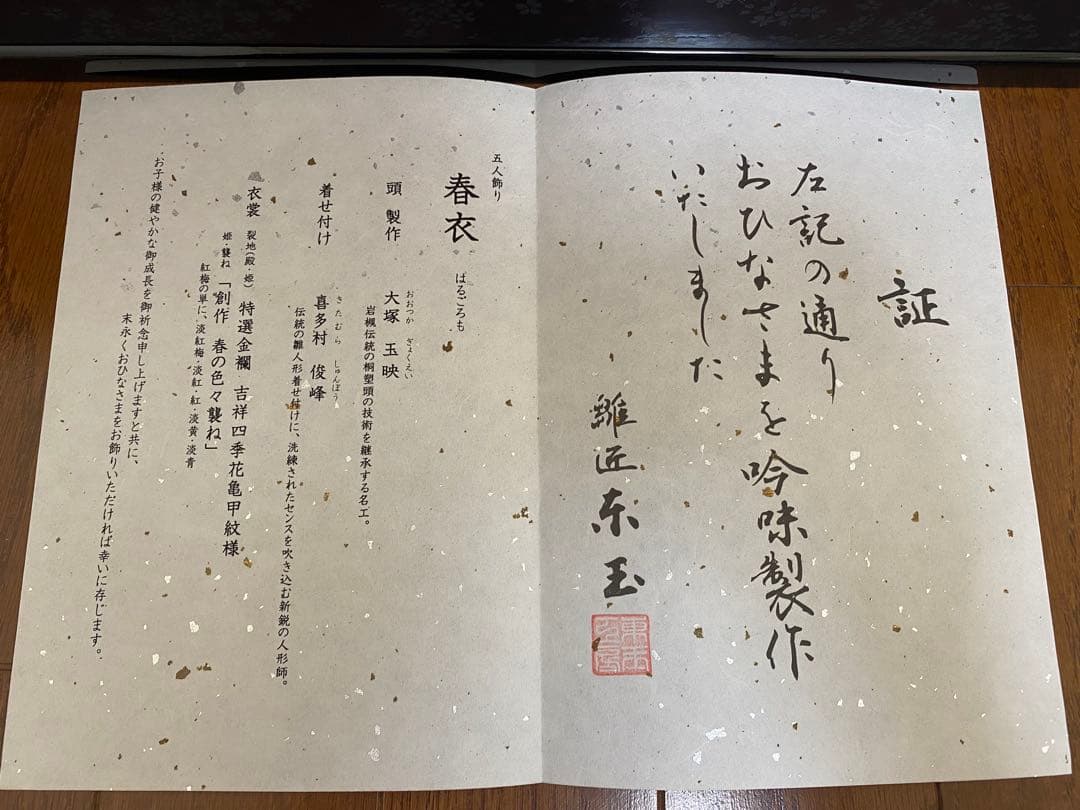 証
左記の通り
おひなさまを吟味製作
いたしました
雛匠東玉
五人飾り
春衣 はるごろも
頭 製作 大塚 玉映
おおつか ぎょくえい
岩槻伝統の桐塑頭の技術を継承する名工。
着せ付け 喜多村 俊峰
きたむら しゅんぽう
伝統の雛人形着せ付けに、洗練されたセンスを吹き込む新鋭の人形師。
衣裳 裂地(殿・姫) 特選金襴 吉祥四季花亀甲紋様
姫・襲ね 「創作 春の色々襲ね」
紅梅の単に、淡紅梅・淡紅・紅・淡黄・淡青
お子様の健やかな御成長を御祈念申し上げますと共に、
末永くおひなさまをお飾りいただければ幸いに存じます。